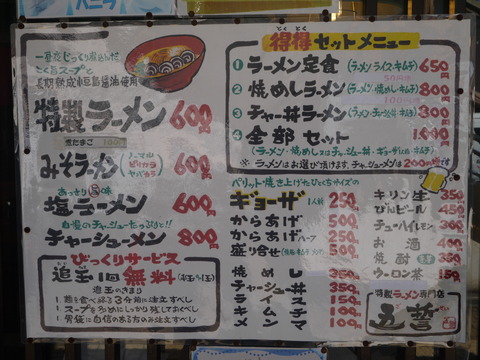 一昼夜じっくり煮込んだ
とく旨スープと
長期熟成小豆島醤油使用
特製ラーメン 600円
煮たまご 100円
みそラーメン 600円
ノーマル
ピリカラ
ヤバカラ
あっさり旨味
塩ラーメン 600円
自慢のチャーシューたっぷりと!!
チャーシューメン 800円
びっくりサービス
追玉1回無料
追玉のきまり
1 麺を食べ終る3分前に注文すべし
1 スープを多めにしっかり残しておくべし
1 胃袋に自信のある方のみ注文すべし
とく とく
得得セットメニュー
1 ラーメン定食 (ラーメン・ライス・キムチ) 650円
50円
2 焼めしラーメン (ラーメン・焼めし・キムチ) 800円
100円
3 チャー丼ラーメン 300円
4 全部セット
(ラーメン・焼めし又はチャーシュー丼・ギョーザ・キムチ)
※ラーメンはお選び頂けます。チャーシューメンは200円増です
パリット・焼き上げたひとくちサイズの
ギョーザ 1人前 250円
からあげ 500円
からあげハーフ 250円
盛り合せ 500円
焼めし 350円
チャーシュー丼 350円
ライス 150円
キムチ
メンマ 100円
キリン生 350円
びんビール 450円
チューハイレモン 300円
お酒 400円
焼酎 350円
ウーロン茶 150円
特製ラーメン専門店